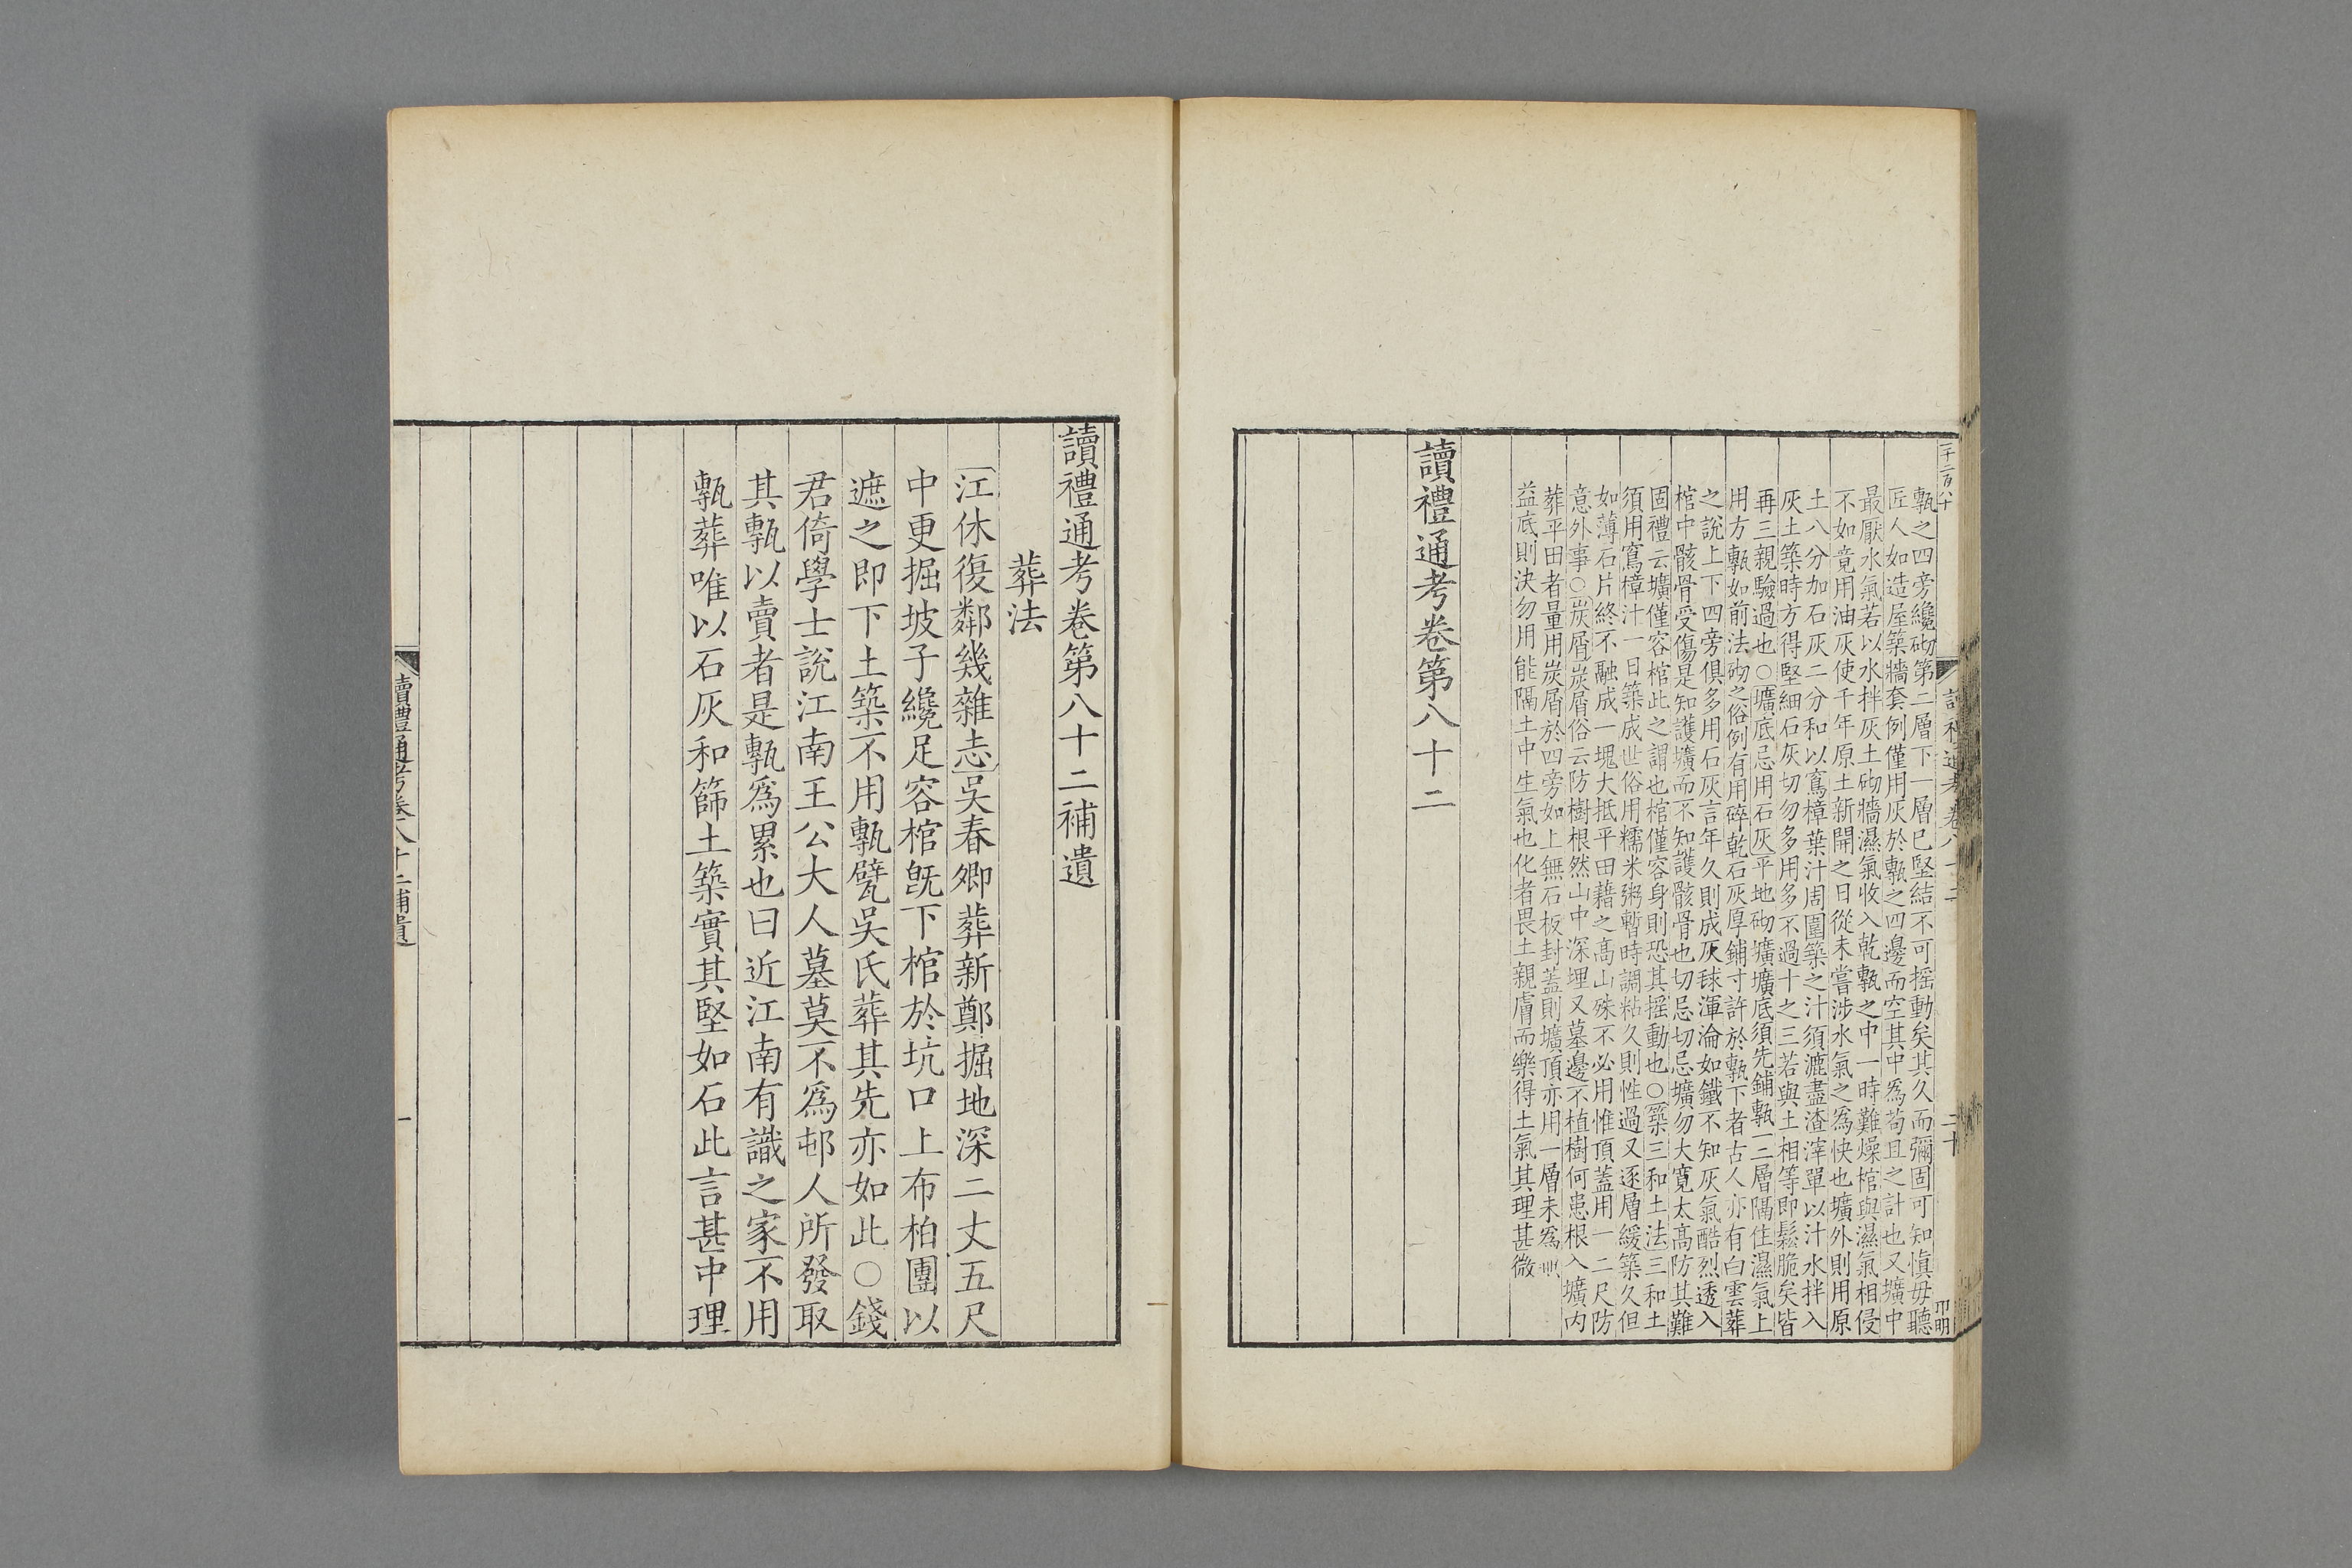 甎之四旁纔砌第二層下一層已堅結不可搖動矣其久而彌固可知慎毋聽
匠人如造屋築牆套例僅用灰於甎之四邊而空其中爲苟且之計也又壙中
最厭水氣若以水拌灰土砌牆濕氣收入乾甎之中一時難燥棺與濕氣相侵
不如竟用油灰使千年原土新開之日從未嘗涉水氣之爲快也壙外則用原
土八分加石灰二分和以窵樟葉汁周圍築之汁須漉盡渣滓單以汁水拌入
灰土築時方得堅細石灰切勿多用多不過十之三若與土相等即鬆脆矣皆
再三親驗過也○壙底忌用石灰平地砌壙壙底須先鋪甎一二層隔住濕氣上
用方甎如前法砌之俗例有用碎乾石灰厚鋪寸許於甎下者古人亦有白雲葬
之說上下四旁俱多用石灰言年久則成灰毬渾淪如鐵不知灰氣酷烈透入
棺中骸骨受傷是知護壙而不知護骸骨也切忌切忌壙勿大寬太高防其難
固禮云壙僅容棺此之謂也棺僅容身則恐其搖動也○築三和土法三和土
須用窵樟汁一日築成世俗用糯米粥暫時調粘久則性過又逐層緩築久但
如薄石片終不融成一塊大抵平田藉之高山殊不必用惟頂蓋用一二尺防
意外事○炭屑炭屑俗云防樹根然山中深埋又墓邊不植樹何患根入壙內
葬平田者量用炭屑於四旁如上無石板封蓋則壙頂亦用一層未爲無
益底則決勿用能隔土中生氣也化者畏土親膚而樂得土氣其理甚微
讀禮通考卷第八十二
讀禮通考卷八十二
二十
讀禮通考卷第八十二補遺
葬法
江休復鄰幾雜志吳春卿葬新鄭掘地深二丈五尺
中更掘坡子纔足容棺旣下棺於坑口上布柏團以
遮之即下土築不用甎甓吳氏葬其先亦如此○錢
君倚學士說江南王公大人墓莫不爲邨人所發取
其甎以賣者是甎爲累也曰近江南有識之家不用
甎葬唯以石灰和篩土築實其堅如石此言甚中理
讀禮通考卷八十二補遺
一